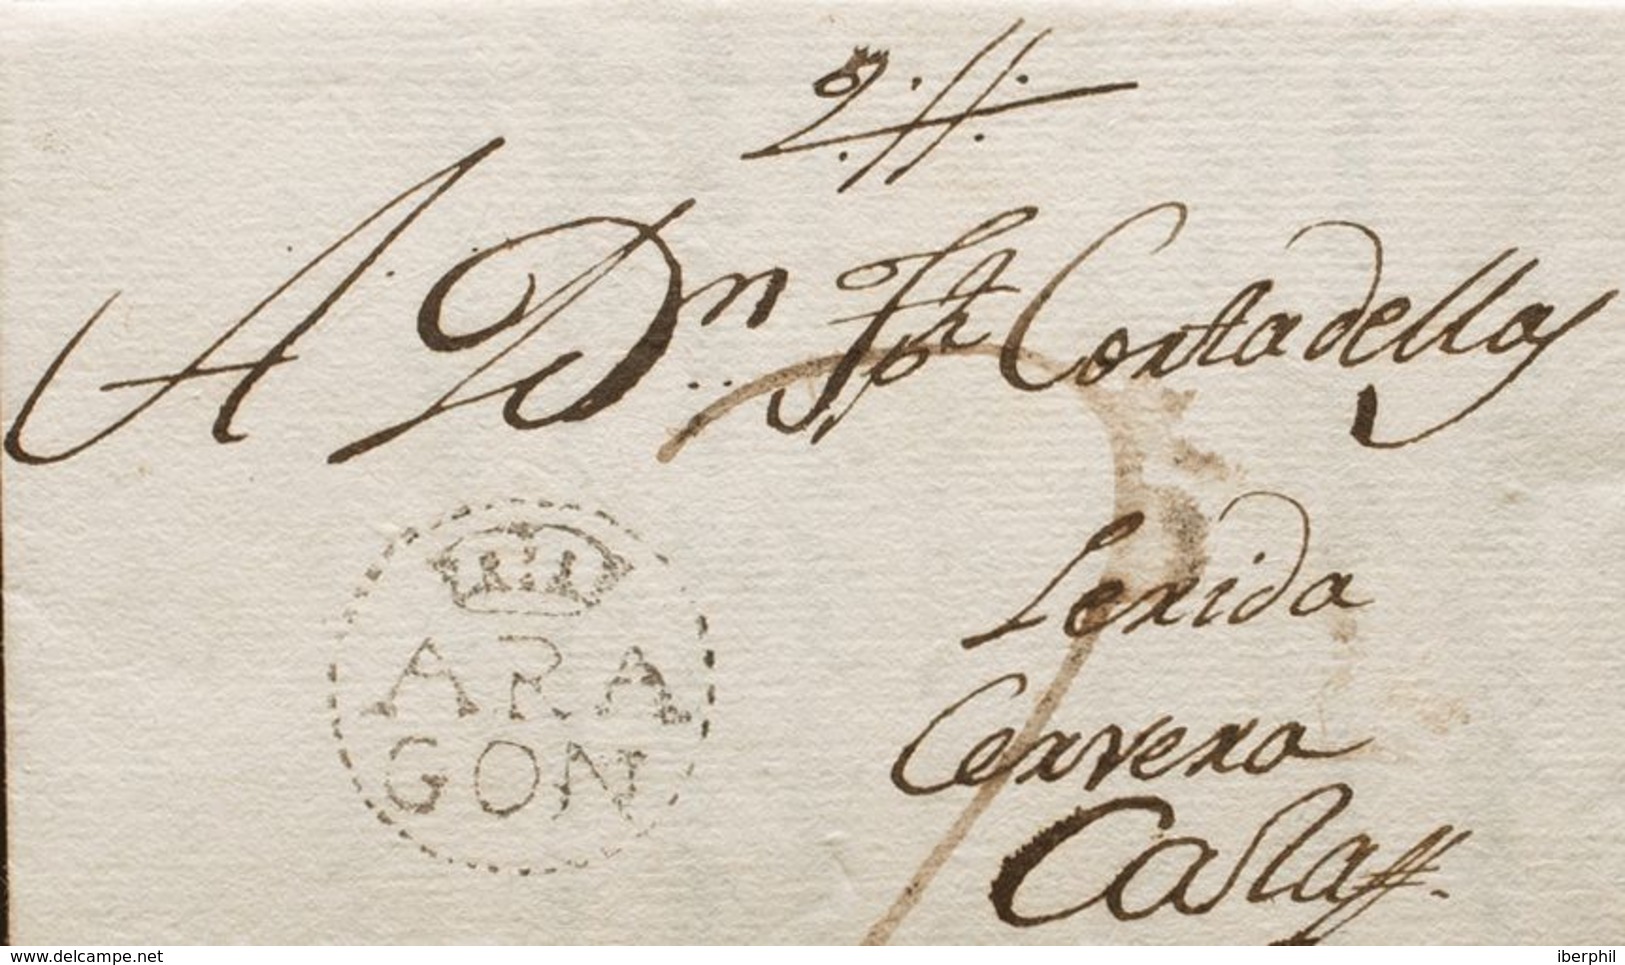 A Dn Jph Cortadellas
ARA
GON
Lerida
Cervera
www.delcampe.net
iberphil